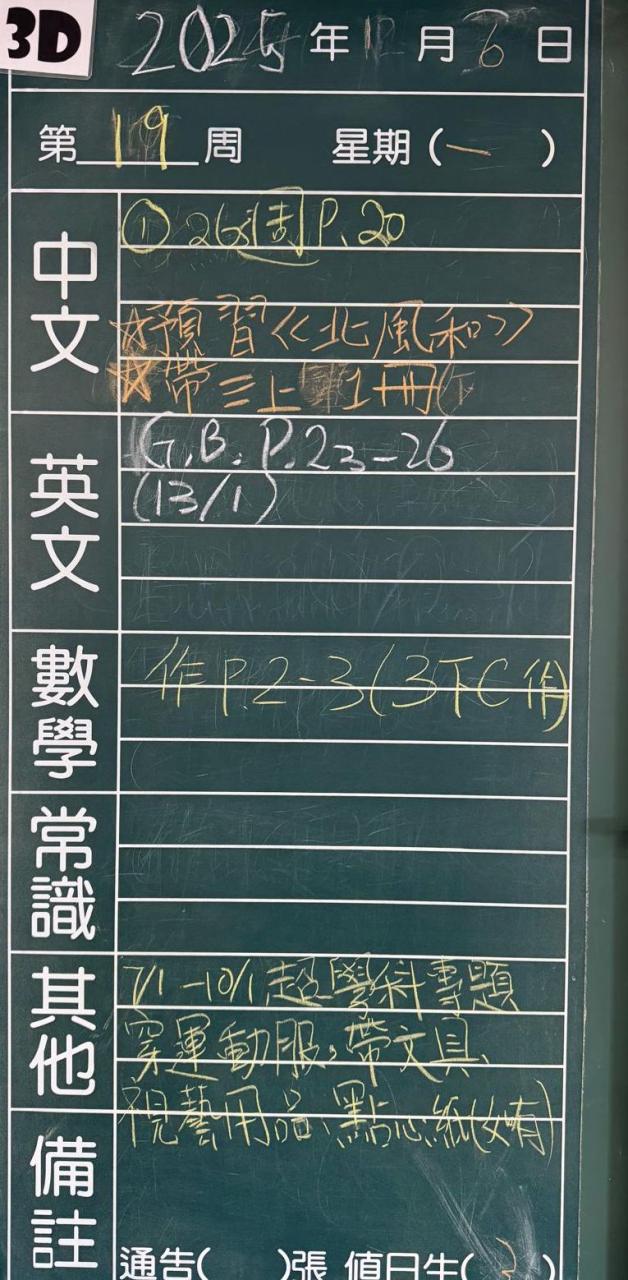 3D
2025年1月6日
第19周 星期(一)
中文
① 26週P.20
☆預習《北風和》
☆帶三上第1冊
英文
G.B. P.23-26
(13/1)
數學
作P.2-3(3下C作)
常識
其他
7/1-10/1超學科專題
穿運動服,帶文具、
視藝用品、點心紙(如有)
備註
通告( )張 值日生(2)